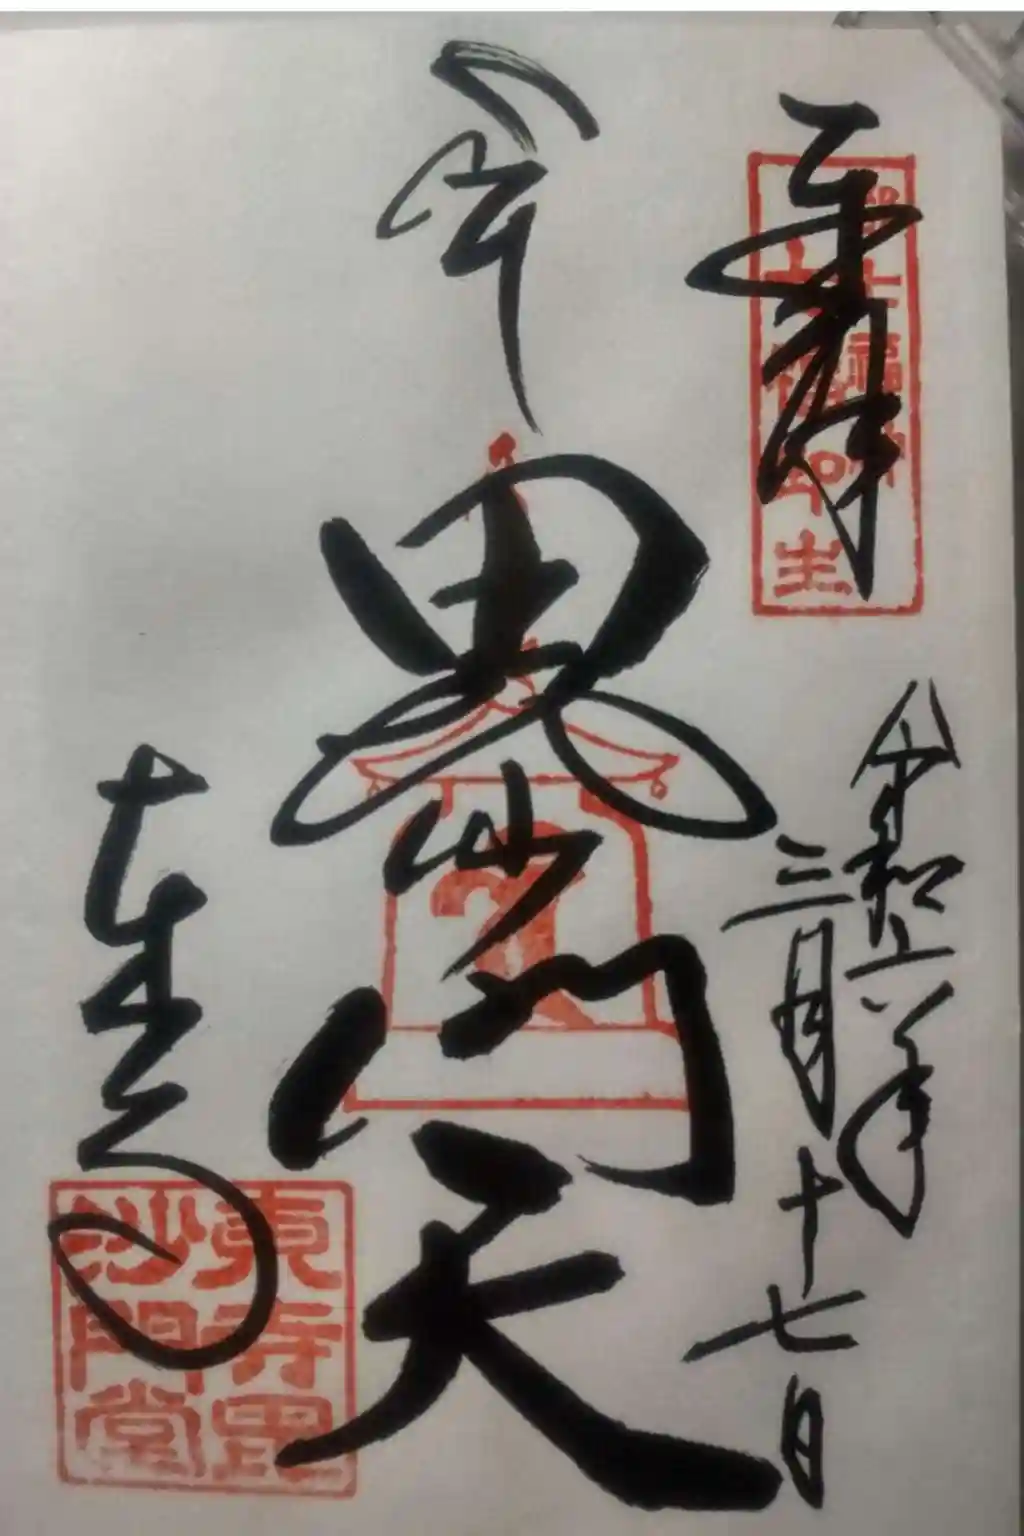 奉拝
都七福神
七福神印
主
令和六年
三月十七日
毘沙門天
東寺
東寺毘
沙門堂